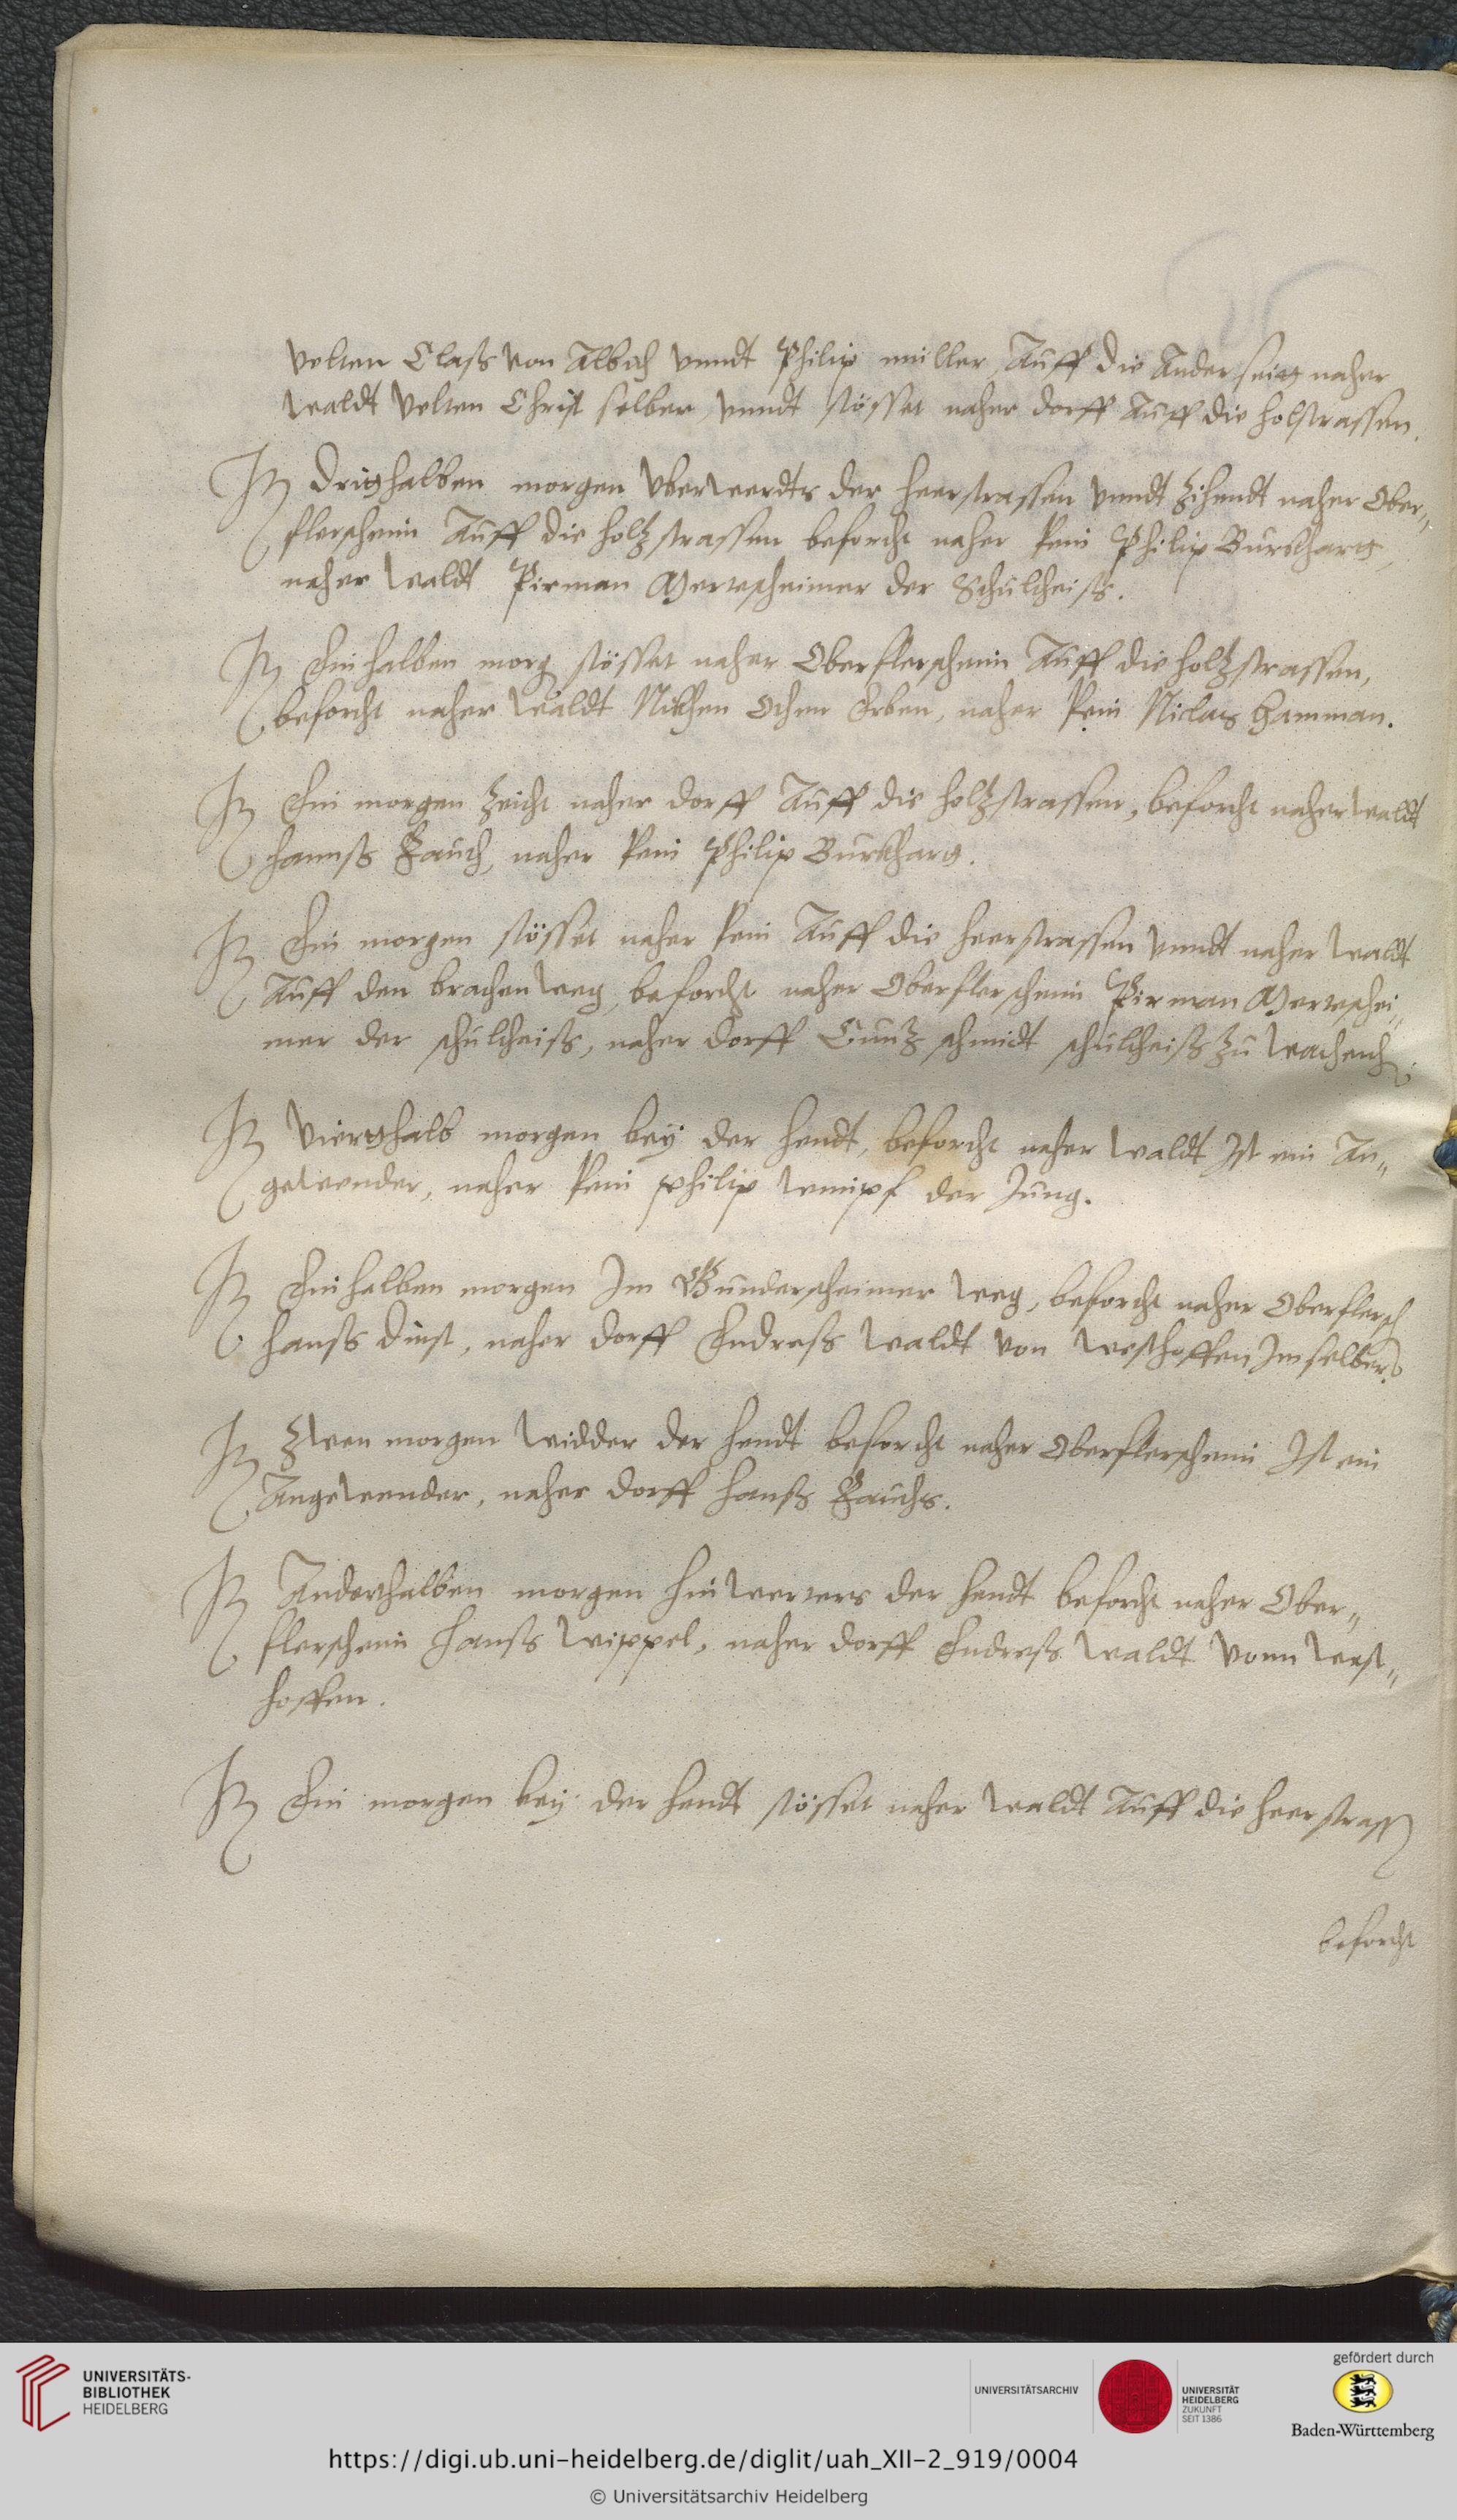 Velten Claß von Albich vnndt Philip müller, Auff die Ander seitt naher
Waldt Velten Christ selber, vnndt stösset naher dorff Auff die holstrassen.
It Dritthalben morgen vberwerdts der heerstrassen vnndt zihendt naher Ober„
flerscheim Auff die holtzstrassen beforcht naher Rein Philip Burkhartt,
naher Waldt Pirman Mertzheimer der Schultheiß.
It Ein halben morg stösset naher Oberflerscheim Auff die holtzstrassen,
beforcht naher Waldt Erben, naher Rein Niclas Hamman.
It Ein morgen zeicht naher dorff Auff die holtzstrassen, beforcht naher Waldt
hannß Rauch, naher Rein Philip Burkhartt.
It Ein morgen stösset naher Rein Auff die heerstrassen vnndt naher Waldt
Auff den brachenweg, beforcht naher Oberflerscheim Pirman Mertzhei„
mer der schultheiß, naher dorff Cuntz schmidt schultheiß zu Wachenh.
It Vierthalb morgen bey der hendt, beforcht naher Waldt Ist ein An„
gewender, naher Rein philip der Jung.
It Ein halben morgen Im Gundersheimer weg, beforcht naher Oberflersch
hanß dinst, naher dorff Endreß Waldt von Westhoffen Im selber.
It Zwen morgen widder der hendt beforcht naher Oberflerscheim Ist ein
Angewender, naher dorff hanß Rauchs.
It Anderthalben morgen hinwerters der hendt beforcht naher Ober„
flerscheim hanß Wippel, naher dorff Endreß Waldt vonn West„
hoffen.
It Ein morgen bey der hendt stösset naher Waldt Auff die heerstrass
beforcht
UNIVERSITÄTS-
BIBLIOTHEK
HEIDELBERG
UNIVERSITÄTSARCHIV
UNIVERSITÄT
HEIDELBERG
ZUKUNFT
SEIT 1386
gefördert durch
Baden-Württemberg
https://digi.ub.uni-heidelberg.de/diglit/uah_XII-2_919/0004
© Universitätsarchiv Heidelberg